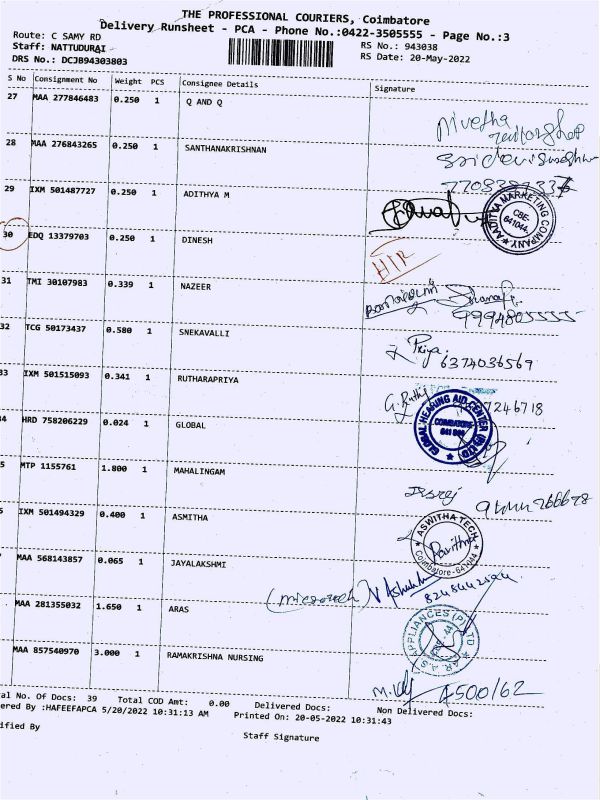 THE PROFESSIONAL COURIERS, Coimbatore
Delivery Runsheet - PCA - Phone No.:0422-3505555 - Page No.:3
Route: C SAMY RD
RS No.: 943038
Staff: NATTUDURAI
RS Date: 20-May-2022
DRS No.: DCJB94303803
S No Consignment No Weight PCS Consignee Details Signature
27 MAA 277846483 0.250 1 Q AND Q
Nivetha
28 MAA 276843265 0.250 1 SANTHANAKRISHNAN
29 IXM 501487727 0.250 1 ADITHYA M
AADITYA MARKETING COMPANY
CBE-
641044.
30 EDQ 13379703 0.250 1 DINESH
31 TMI 30107983 0.339 1 NAZEER
9994805555
32 TCG 50173437 0.580 1 SNEKAVALLI
Priya
6374036569
33 IXM 501515093 0.341 1 RUTHARAPRIYA
7246718
34 HRD 758206229 0.024 1 GLOBAL
GLOBAL HEARING AID CENTER (P) LTD
COIMBATORE
5 MTP 1155761 1.800 1 MAHALINGAM
6 IXM 501494329 0.400 1 ASMITHA
ASWITHA TECH
Pavithra
Coimbatore-641044
MAA 568143857 0.065 1 JAYALAKSHMI
MAA 281355032 1.650 1 ARAS
A.R.A.S APPLIANCES (P) LTD
MAA 857540970 3.000 1 RAMAKRISHNA NURSING
4500/62
al No. Of Docs: 39 Total COD Amt: 0.00 Delivered Docs: Non Delivered Docs:
ered By :HAFEEFAPCA 5/20/2022 10:31:13 AM Printed On: 20-05-2022 10:31:43
ified By Staff Signature